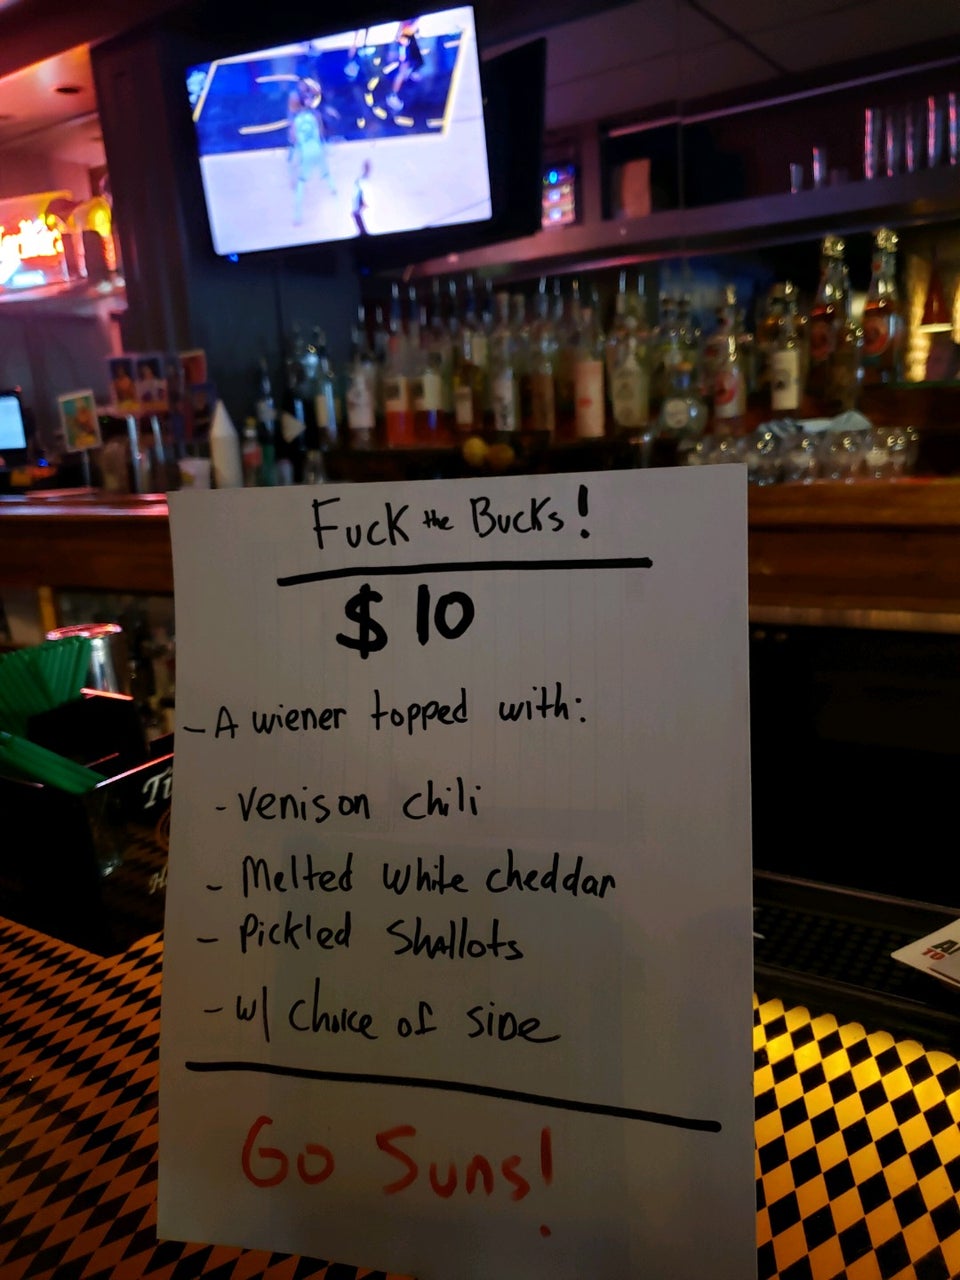 Fuck the Bucks!
$10
- A wiener topped with:
- Venison chili
- Melted white cheddar
- Pickled Shallots
- w/ Choice of side
Go Suns!